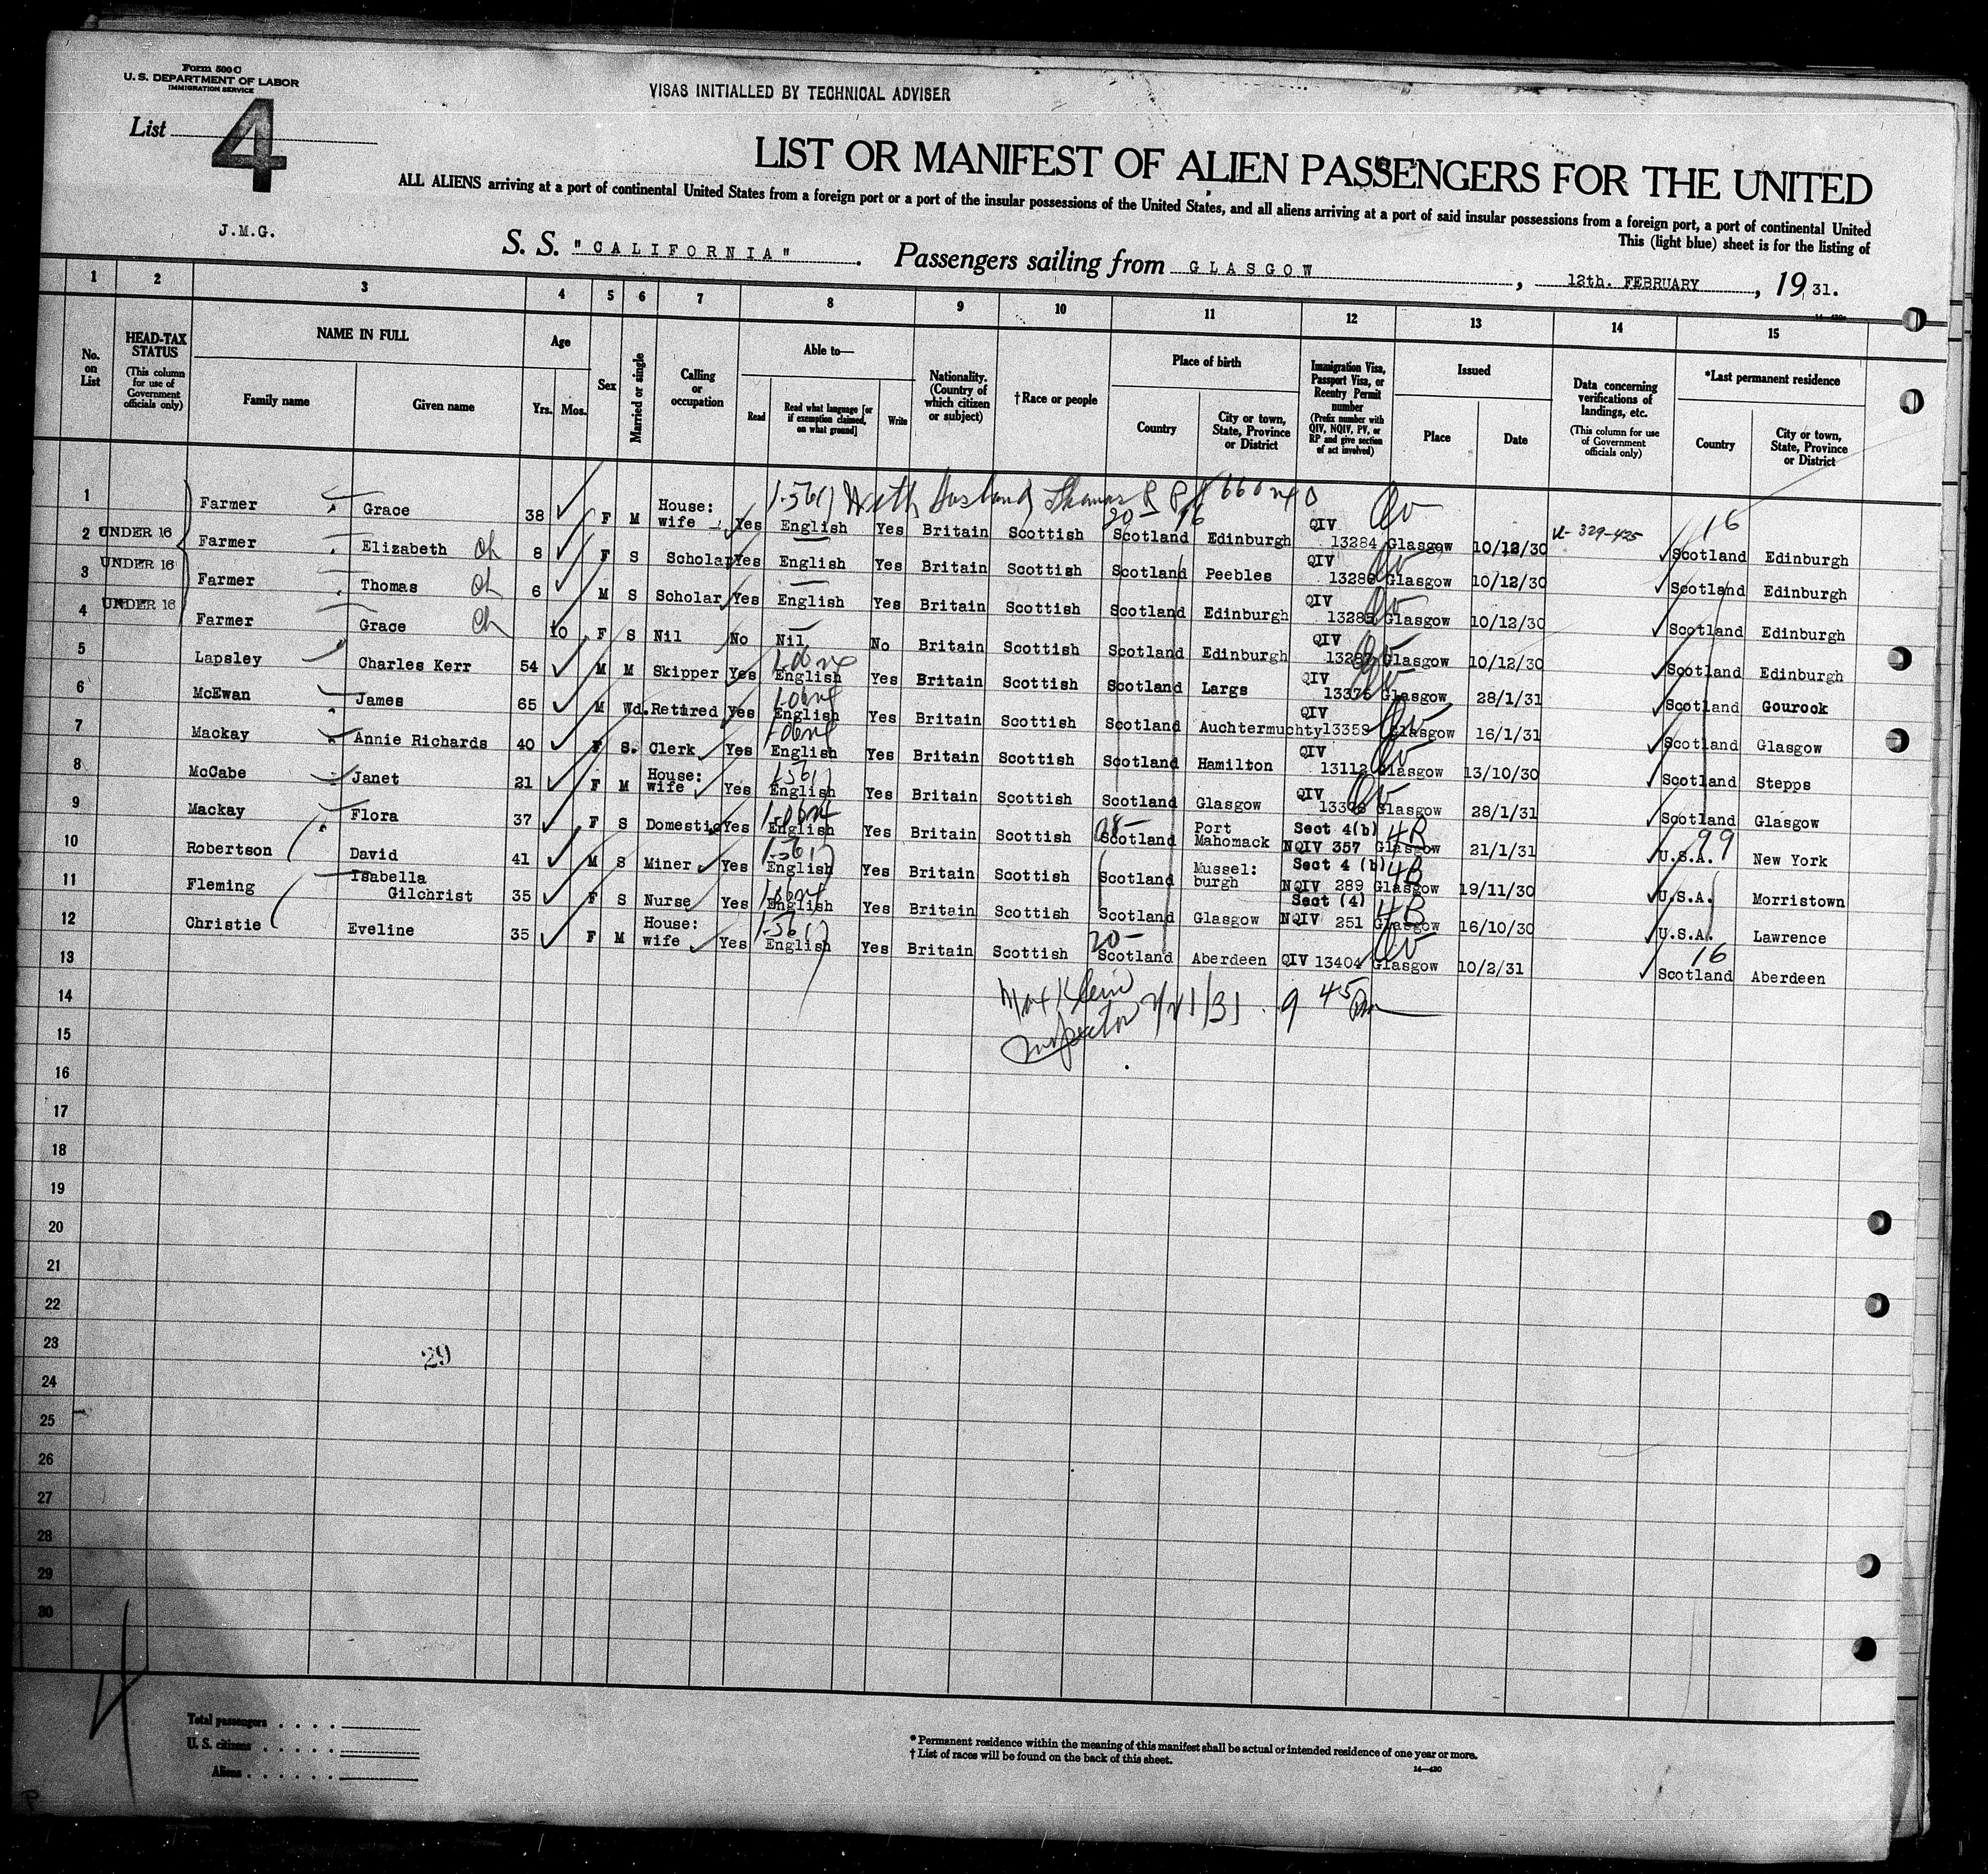 Form 500 C
U. S. DEPARTMENT OF LABOR
IMMIGRATION SERVICE
VISAS INITIALLED BY TECHNICAL ADVISER
List 4
LIST OR MANIFEST OF ALIEN PASSENGERS FOR THE UNITED
ALL ALIENS arriving at a port of continental United States from a foreign port or a port of the insular possessions of the United States, and all aliens arriving at a port of said insular possessions from a foreign port, a port of continental United
This (light blue) sheet is for the listing of
J.M.G.
S. S. "CALIFORNIA". Passengers sailing from GLASGOW, 12th. FEBRUARY, 1931.
1 2 3 4 5 6 7 8 9 10 11 12 13 14 15
No. on List
HEAD-TAX STATUS (This column for use of Government officials only)
NAME IN FULL
Family name Given name
Age
Yrs. Mos.
Sex
Married or single
Calling or occupation
Able to—
Read Read what language [or if exemption claimed, on what ground] Write
Nationality. (Country of which citizen or subject)
†Race or people
Place of birth
Country City or town, State, Province or District
Immigration Visa, Passport Visa, or Reentry Permit number (Prefix number with QIV, NQIV, PV, or RP and give section of act involved)
Issued
Place Date
Data concerning verifications of landings, etc. (This column for use of Government officials only)
*Last permanent residence
Country City or town, State, Province or District
With Husband Thomas
20 16
1 Farmer Grace 38 F M House: wife Yes English Yes Britain Scottish Scotland Edinburgh QIV 13284 Glasgow 10/12/30 16 Scotland Edinburgh
2 UNDER 16 Farmer Elizabeth Ch 8 F S Scholar Yes English Yes Britain Scottish Scotland Peebles QIV Glasgow 10/12/30 Scotland Edinburgh
3 UNDER 16 Farmer Thomas Ch 6 M S Scholar Yes English Yes Britain Scottish Scotland Edinburgh QIV 13285 Glasgow 10/12/30 Scotland Edinburgh
4 UNDER 16 Farmer Grace Ch 10 F S Nil No Nil No Britain Scottish Scotland Edinburgh QIV 13287 Glasgow 10/12/30 Scotland Edinburgh
5 Lapsley Charles Kerr 54 M M Skipper Yes English Yes Britain Scottish Scotland Largs QIV 13376 Glasgow 28/1/31 Scotland Gourock
6 McEwan James 65 M Wd. Retired Yes English Yes Britain Scottish Scotland Auchtermuchty QIV 13359 Glasgow 16/1/31 Scotland Glasgow
7 Mackay Annie Richards 40 F S. Clerk Yes English Yes Britain Scottish Scotland Hamilton QIV 13112 Glasgow 13/10/30 Scotland Stepps
8 McCabe Janet 21 F M House: wife Yes English Yes Britain Scottish Scotland Glasgow QIV Glasgow 28/1/31 Scotland Glasgow
9 Mackay Flora 37 F S Domestic Yes English Yes Britain Scottish Scotland Port Mahomack Sect 4(b) NQIV 357 4B Glasgow 21/1/31 99 U.S.A. New York
10 Robertson David 41 M S Miner Yes English Yes Britain Scottish Scotland Mussel: burgh Sect 4 (b) NQIV 289 4B Glasgow 19/11/30 U.S.A. Morristown
11 Fleming Isabella Gilchrist 35 F S Nurse Yes English Yes Britain Scottish Scotland Glasgow Sect (4) NQIV 251 4B Glasgow 16/10/30 U.S.A. Lawrence
12 Christie Eveline 35 F M House: wife Yes English Yes Britain Scottish 20 Scotland Aberdeen QIV 13404 Glasgow 10/2/31 16 Scotland Aberdeen
13
14 Max Klein 9 45
15 Inspector
16
17
18
19
20
21
22
23
29
24
25
26
27
28
29
30
Total passengers
U. S. citizens
Aliens
* Permanent residence within the meaning of this manifest shall be actual or intended residence of one year or more.
† List of races will be found on the back of this sheet.
14—430